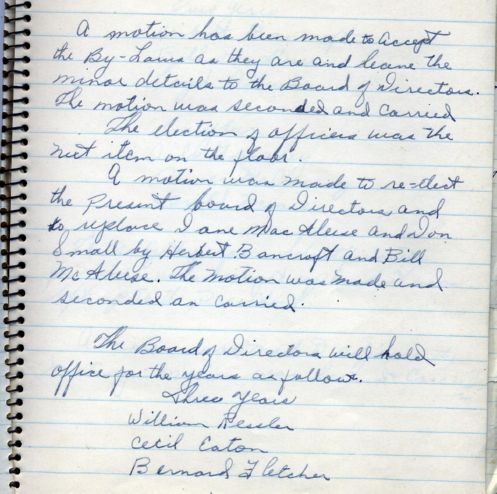 A motion has been made to accept
the By-Laws as they are and leave the
minor details to the Board of Directors.
The motion was seconded and carried
The election of officers was the
next item on the floor.
A motion was made to re-elect
the Present board of Directors and
to replace Jane MacAleese and Don
Small by Herbert Bancroft and Bill
McAleese. The motion was made and
seconded an carried.
The Board of Directors will hold
office for the years as follow.
Three years
William Kessler
Cecil Eaton
Bernard Fletcher